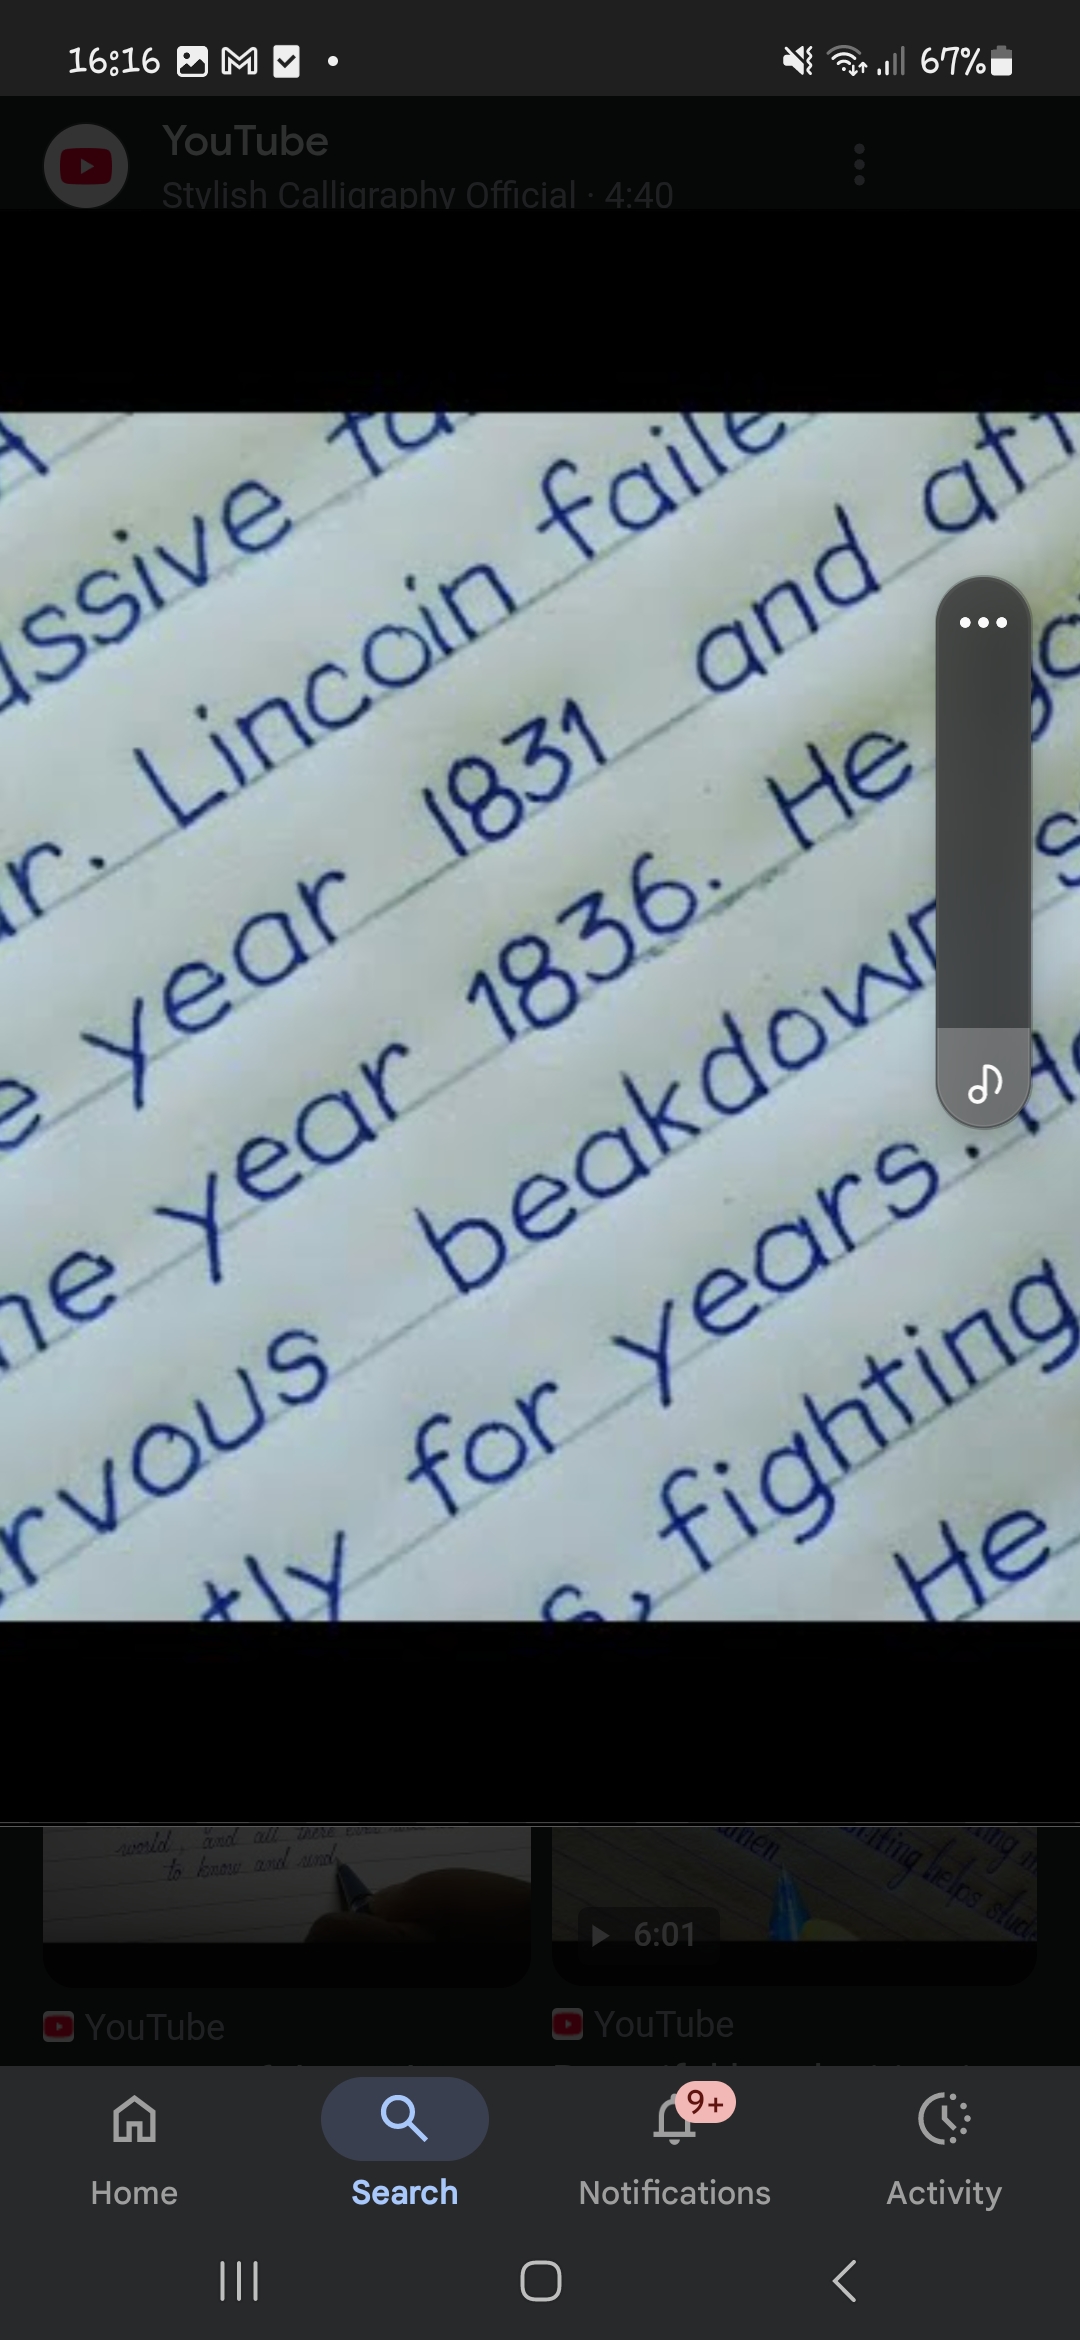 16:16
67%
YouTube
Stylish Calligraphy Official · 4:40
ssive
Lincoin faile
r.
year 1831 and
year 1836. He
rvous beakdown
tly for years.
fighting
He
world, and all there
to know and und
helps stud
6:01
YouTube
YouTube
9+
Home
Search
Notifications
Activity